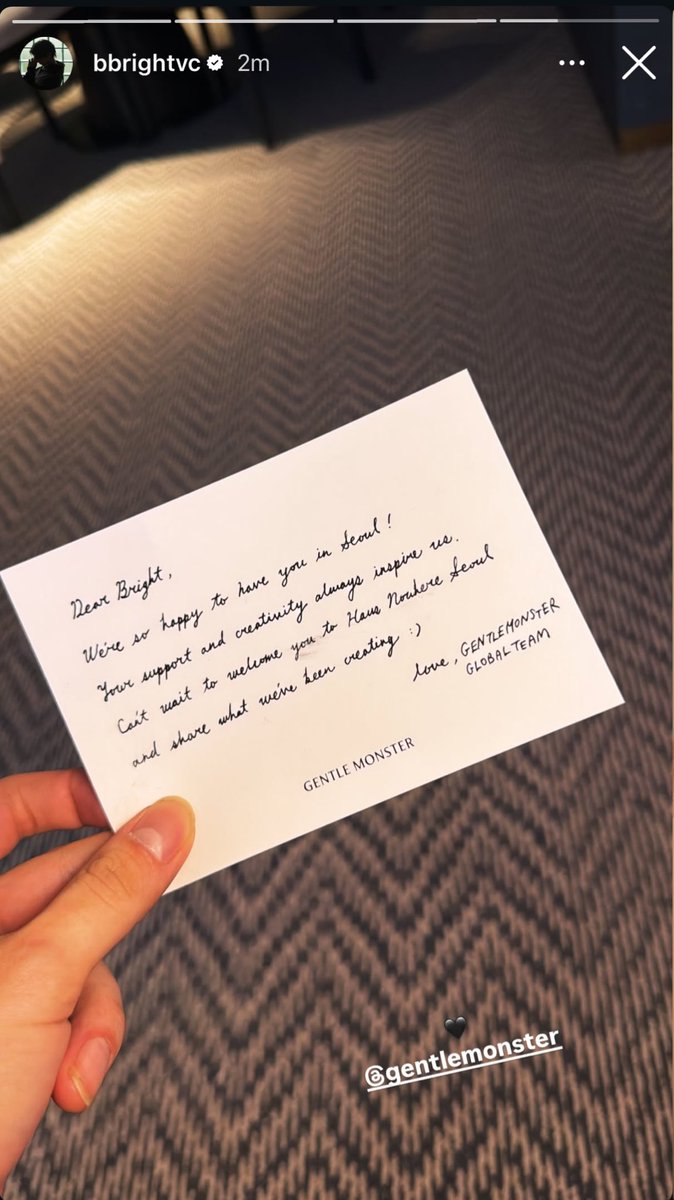 bbrightvc 2m
Dear Bright,
We're so happy to have you in Seoul!
Your support and creativity always inspire us.
Can't wait to welcome you to Haus Nowhere Seoul
and share what we've been creating :)
love, GENTLEMONSTER
GLOBAL TEAM
GENTLE MONSTER
@gentlemonster